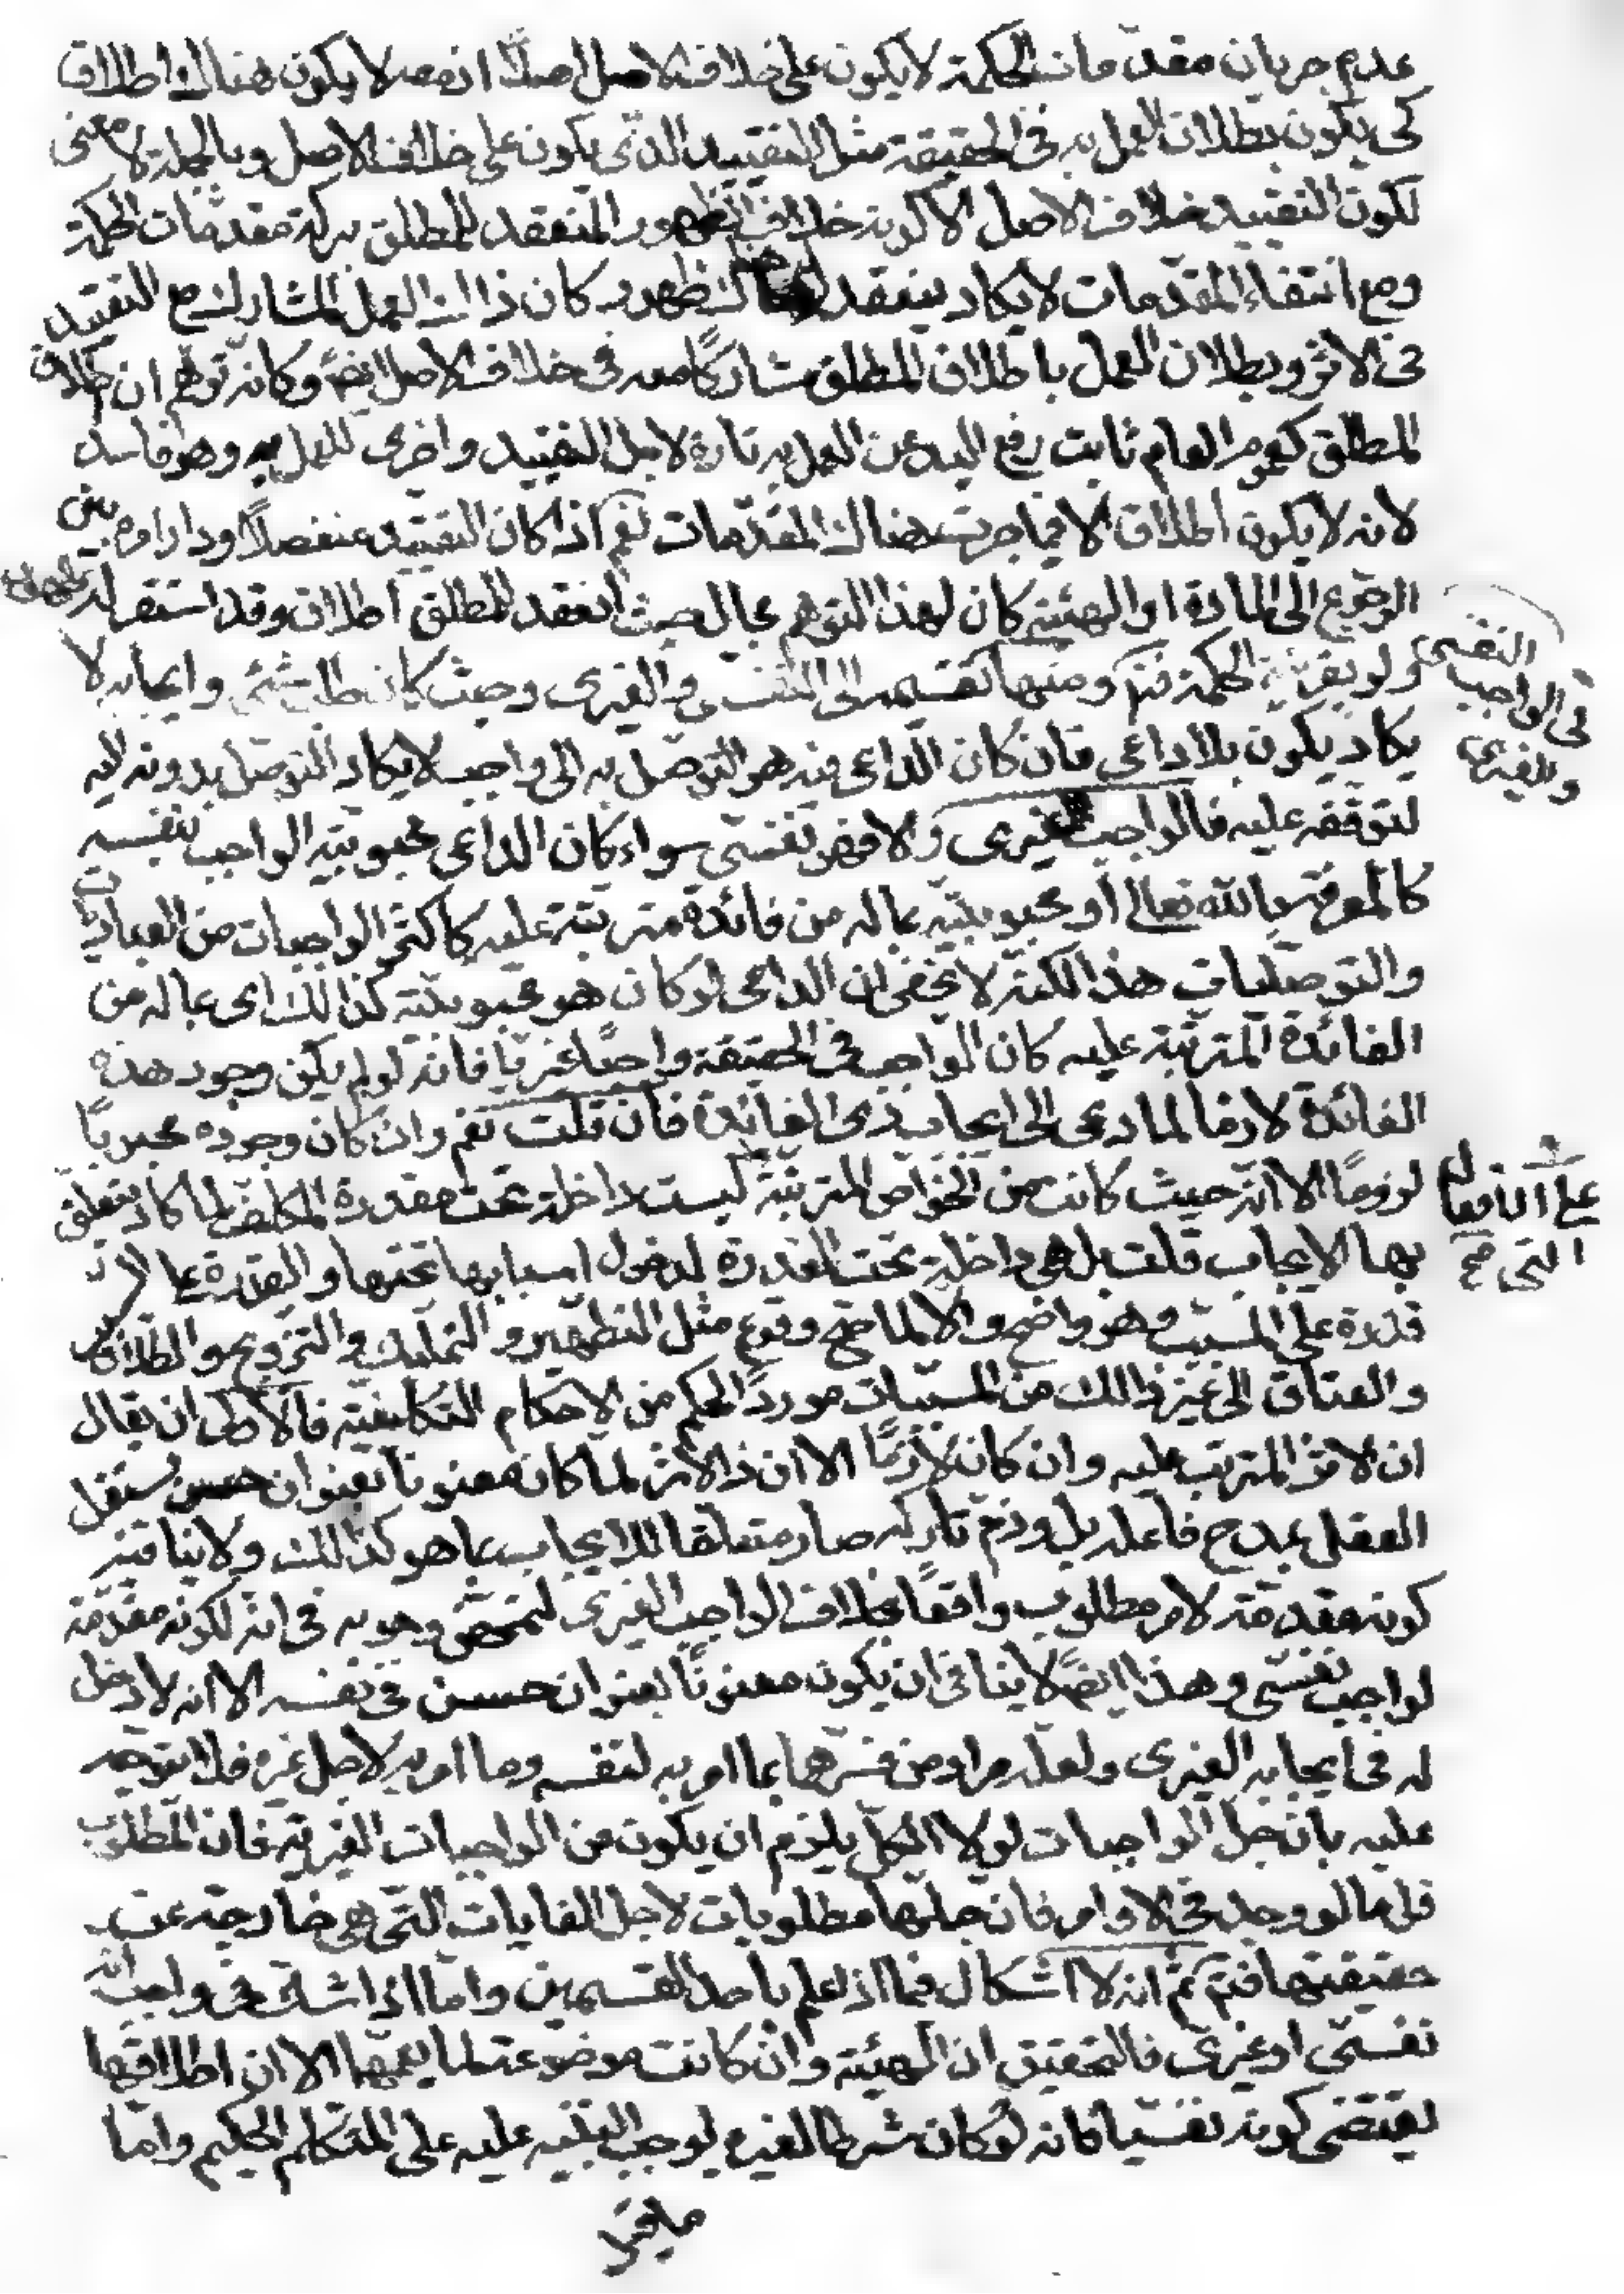 عدم جريان مقدمات الحكمة لا يكون على خلاف الاصل اصلا اذ معه لا يكون هناك اطلاق
كى يكون بطلان العمل به فى الحقيقة مثل التقييد الذى يكون على خلاف الاصل وبالجملة لا معنى
لكون التقييد خلاف الاصل الا كونه خلاف الظهور المنعقد للمطلق ببركة مقدمات الحكمة
ومع انتفاء المقدمات لا يكاد ينعقد له هناك ظهور كان ذاك العمل المشارك مع التقييد
فى الاثر وبطلان العمل باطلاق المطلق مشاركا معه فى خلاف الاصل ايضا وكانه توهم ان اطلاق
المطلق كعموم العام ثابت رفع اليد عن العمل به تارة لاجل التقييد واخرى للعمل به وهو فاسد
لانه لا يكون اطلاق الا فيما جرت هناك المقدمات نعم اذا كان التقييد منفصلا ودار امره بين
الرجوع الى المادة او الهيئة كان لهذا التوهم مجال حيث انعقد للمطلق اطلاق وقد استقر له ظهور
ولو بقرينة الحكمة فتم ومنها تقسيمه الى النفسى والغيرى وحيث كان طلب شئ وايجابه لا
النفسى
فى الواجب
والغيرى
يكاد يكون بلا داعى فان كان الداعى فيه هو التوصل به الى واجب لا يكاد التوصل بدونه اليه
لتوقفه عليه فالواجب الغيرى والا فهو نفسى سواء كان الداعى محبوبية الواجب بنفسه
كالمعرفة بالله تعالى او محبوبيته بما له من فائدة مترتبة عليه كاكثر الواجبات من العبادات
والتوصليات هذا لكنه لا يخفى ان الداعى لو كان هو محبوبيته كذالك اى بما له من
الفائدة المترتبة عليه كان الواجب فى الحقيقة واجبا غيريا فانه لو لم يكن وجود هذه
الفائدة لازما لما دعى الى ايجاب ذى الفائدة فان قلت نعم وان كان وجوده محبوبا
لزوما الا انه حيث كانت من الخواص المترتبة ليست داخلة تحت مقدرة المكلف لما كاد يتعلق
على الافعال
التى صح
بها الايجاب قلت بل هى داخلة تحت القدرة لدخول اسبابها تحتها والقدرة على السبب
قدرة على المسبب وهو واضح والا لما صح وقوع مثل التطهير والتمليك والتزويج والطلاق
والعتاق الى غير ذالك من المسببات موردا لحكم من الاحكام التكليفية فالاولى ان يقال
ان الاثر المترتب عليه وان كان لازما الا ان ذا الاثر لما كان معنونا بعنوان حسن يستقل
العقل بمدح فاعله بل وذم تاركه صار متعلقا للايجاب بما هو كذالك ولا ينافيه
كونه مقدمة لامر مطلوب واقعا بخلاف الواجب الغيرى لتمحض وجوبه فى انه لكونه مقدمة
لواجب نفسى وهذا ايضا لا ينافى ان يكون معنونا بعنوان حسن فى نفسه الا انه لا دخل
له فى ايجابه الغيرى ولعله مراد من فسرهما بما امر به لنفسه وما امر به لاجل غيره فلا يتوجه
عليه بان جل الواجبات لولا الكل يلزم ان يكون من الواجبات الغيرية فان المطلوب
قل ما لو وجد فى الاوامر فان جلها مطلوبات لاجل الغايات التى هى خارجة عن
حقيقتها فتم ثم انه لا اشكال فيما اذ اعلم باحد القسمين واما اذا شك فى واجب انه
نفسى او غيرى فالتحقيق ان الهيئة وان كانت موضوعة لما يعمهما الا ان اطلاقها
يقتضى كونه نفسيا فانه لو كان شرطا لغيره لوجب التنبيه عليه على المتكلم الحكيم واما